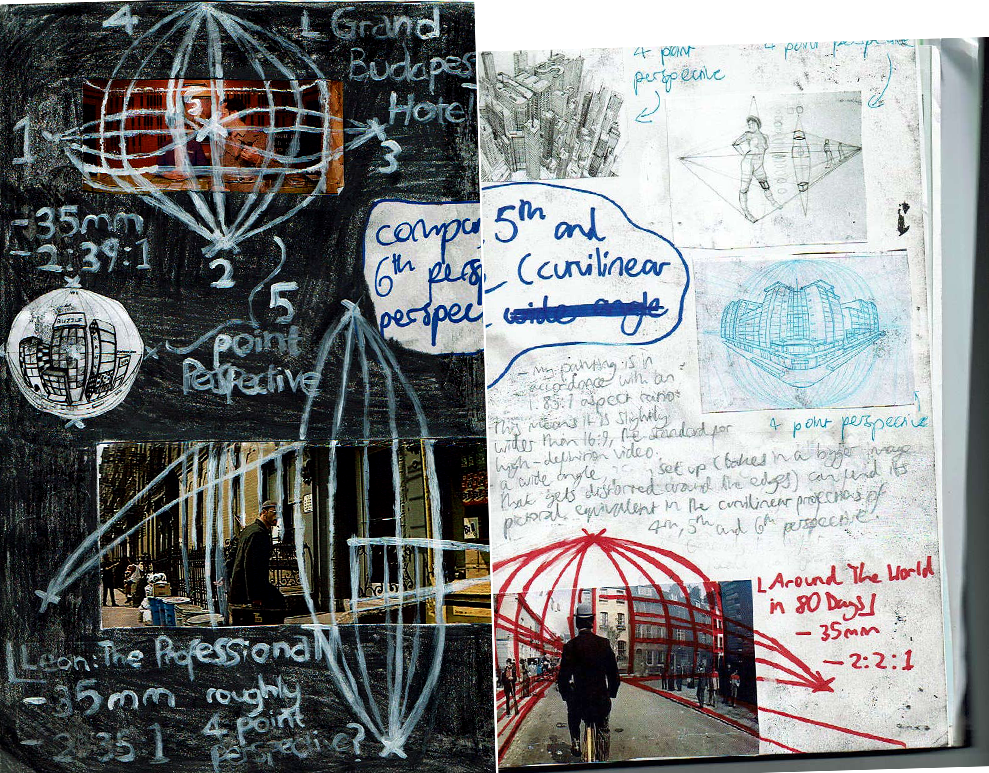 4
L Grand
Budapes
Hotel
5
1
3
2
-35mm
-2.39:1
5
point
Perspective
PUZZLE
compa
6th persp
perspec
[Leon: The Professional]
-35mm roughly
- 2.35:1 4 point
perspective?
4 point
perspective
4 point perspective
5th and
- (curvilinear
- wide angle
- my painting is in
accordance with an
1.85:1 aspect ratio.
This means it is slightly
wider than 16:9, the standard for
high-definition video.
a wide angle set up (takes in a bigger image
that gets distorred around the edges) can find its
pictorial equivalent in the curvilinear projections of
4th, 5th and 6th perspective.
4 point perspective
L Around The World
in 80 Days]
- 35mm
- 2:2:1